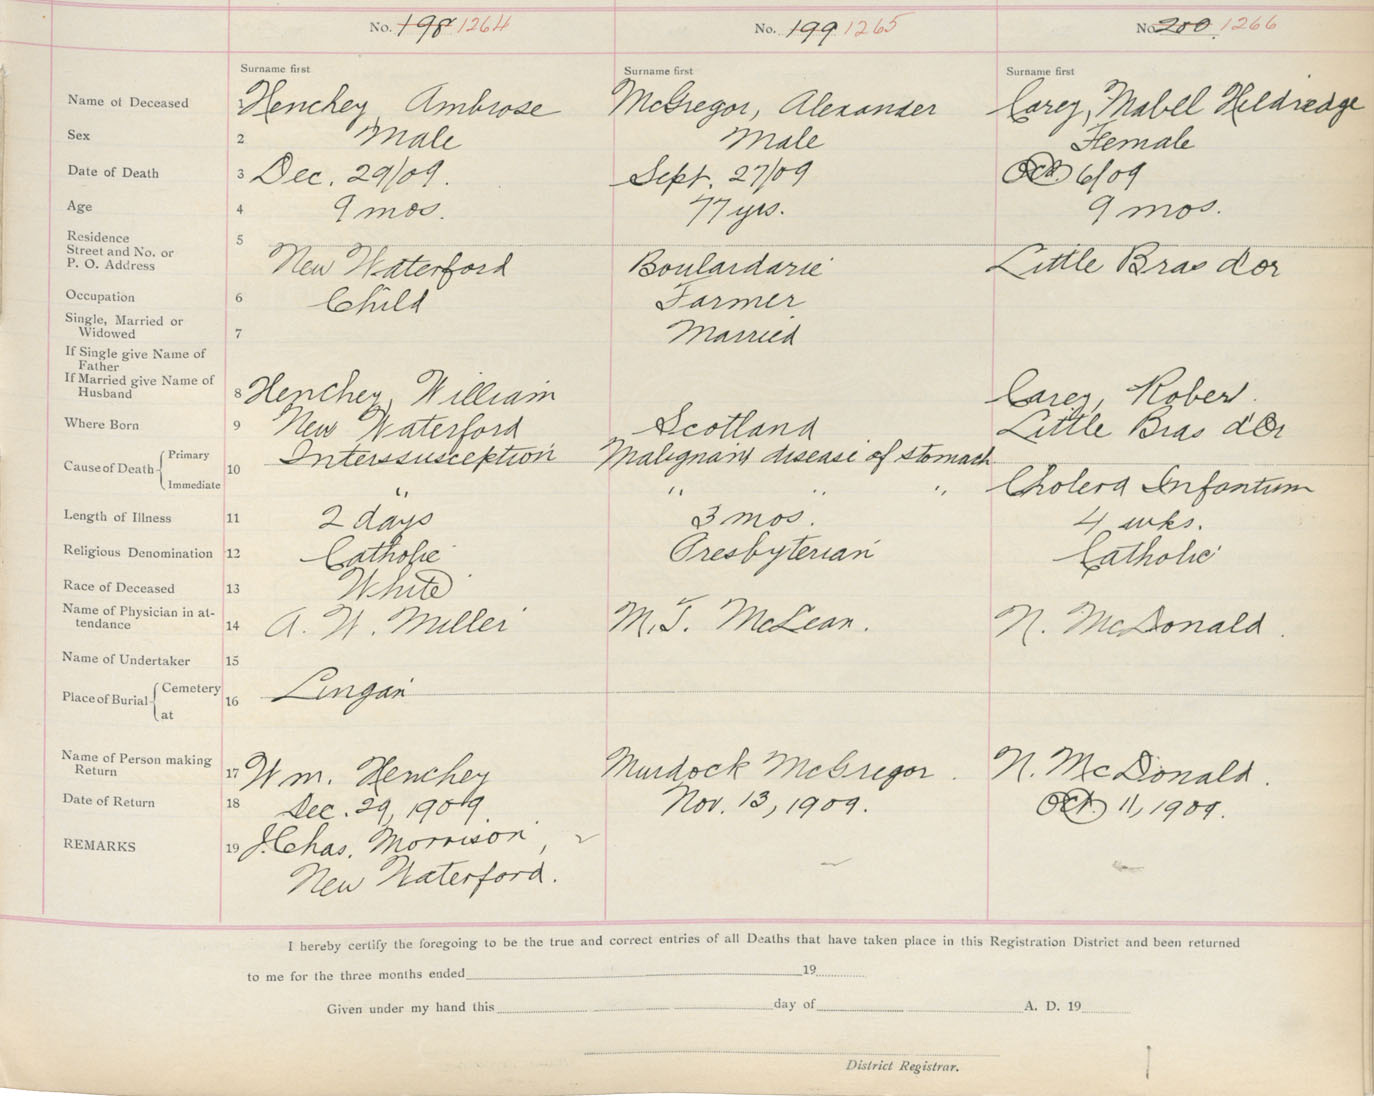 No. 198 1264 No. 199 1265 No. 200. 1266
Surname first Surname first Surname first
Name of Deceased 1 Henchey, Ambrose McGregor, Alexander Carey, Mabel Hildredge
Sex 2 Male Male Female
Date of Death 3 Dec. 29/09. Sept. 27/09 Oct. 6/09
Age 4 9 mos. 77 yrs. 9 mos.
Residence 5
Street and No. or
P. O. Address New Waterford Boulardarie Little Bras d'or
Occupation 6 Child Farmer
Single, Married or
Widowed 7 Married
If Single give Name of
Father
If Married give Name of
Husband 8 Henchey, William Carey, Rober
Where Born 9 New Waterford Scotland Little Bras d'Or
Cause of Death Primary 10 Interssusception Malignant disease of stomach
Immediate " " " " Cholera Infantum
Length of Illness 11 2 days 3 mos. 4 wks.
Religious Denomination 12 Catholic Presbyterian Catholic
Race of Deceased 13 White
Name of Physician in at-
tendance 14 A. W. Miller M. T. McLean. N. McDonald.
Name of Undertaker 15
Place of Burial Cemetery 16 Lingan
at
Name of Person making
Return 17 Wm. Henchey Murdock McGregor. N. McDonald.
Date of Return 18 Dec. 29, 1909. Nov. 13, 1909. Oct. 11, 1909.
REMARKS 19 J. Chas. Morrison,
New Waterford.
I hereby certify the foregoing to be the true and correct entries of all Deaths that have taken place in this Registration District and been returned
to me for the three months ended 19
Given under my hand this day of A. D. 19
District Registrar.